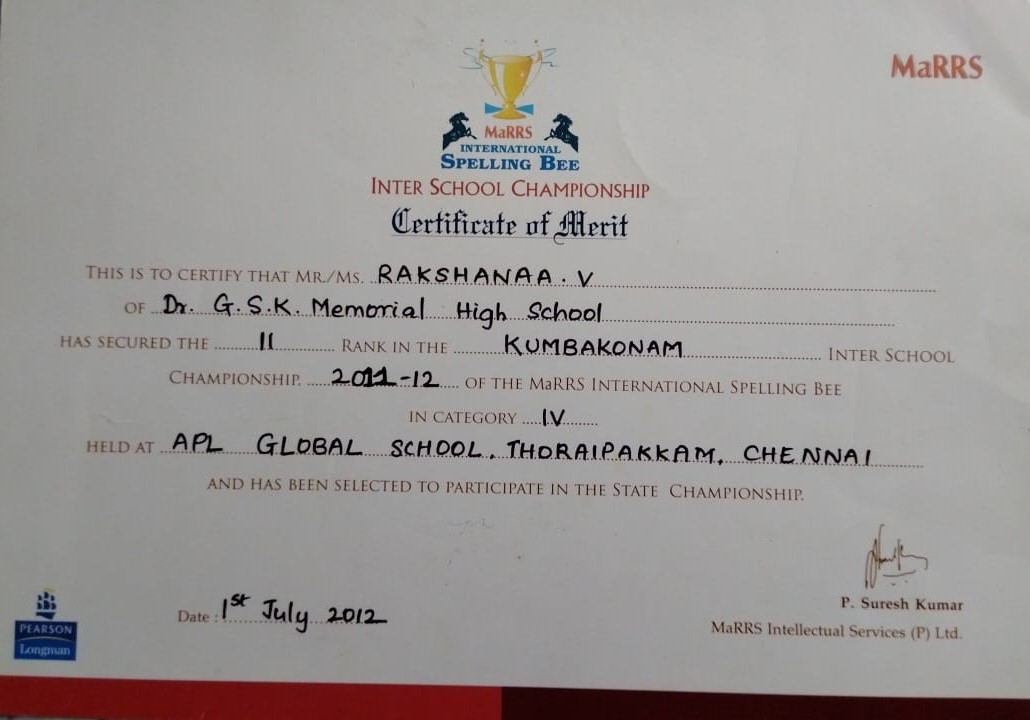 MaRRS
MaRRS
INTERNATIONAL
SPELLING BEE
INTER SCHOOL CHAMPIONSHIP
Certificate of Merit
THIS IS TO CERTIFY THAT MR./MS. RAKSHANAA. V
OF Dr. G.S.K. Memorial High School
HAS SECURED THE II RANK IN THE KUMBAKONAM INTER SCHOOL
CHAMPIONSHIP 2011-12 OF THE MaRRS INTERNATIONAL SPELLING BEE
IN CATEGORY IV
HELD AT APL GLOBAL SCHOOL, THORAIPAKKAM, CHENNAI
AND HAS BEEN SELECTED TO PARTICIPATE IN THE STATE CHAMPIONSHIP.
P. Suresh Kumar
MaRRS Intellectual Services (P) Ltd.
Date : 1st July 2012
PEARSON
Longman